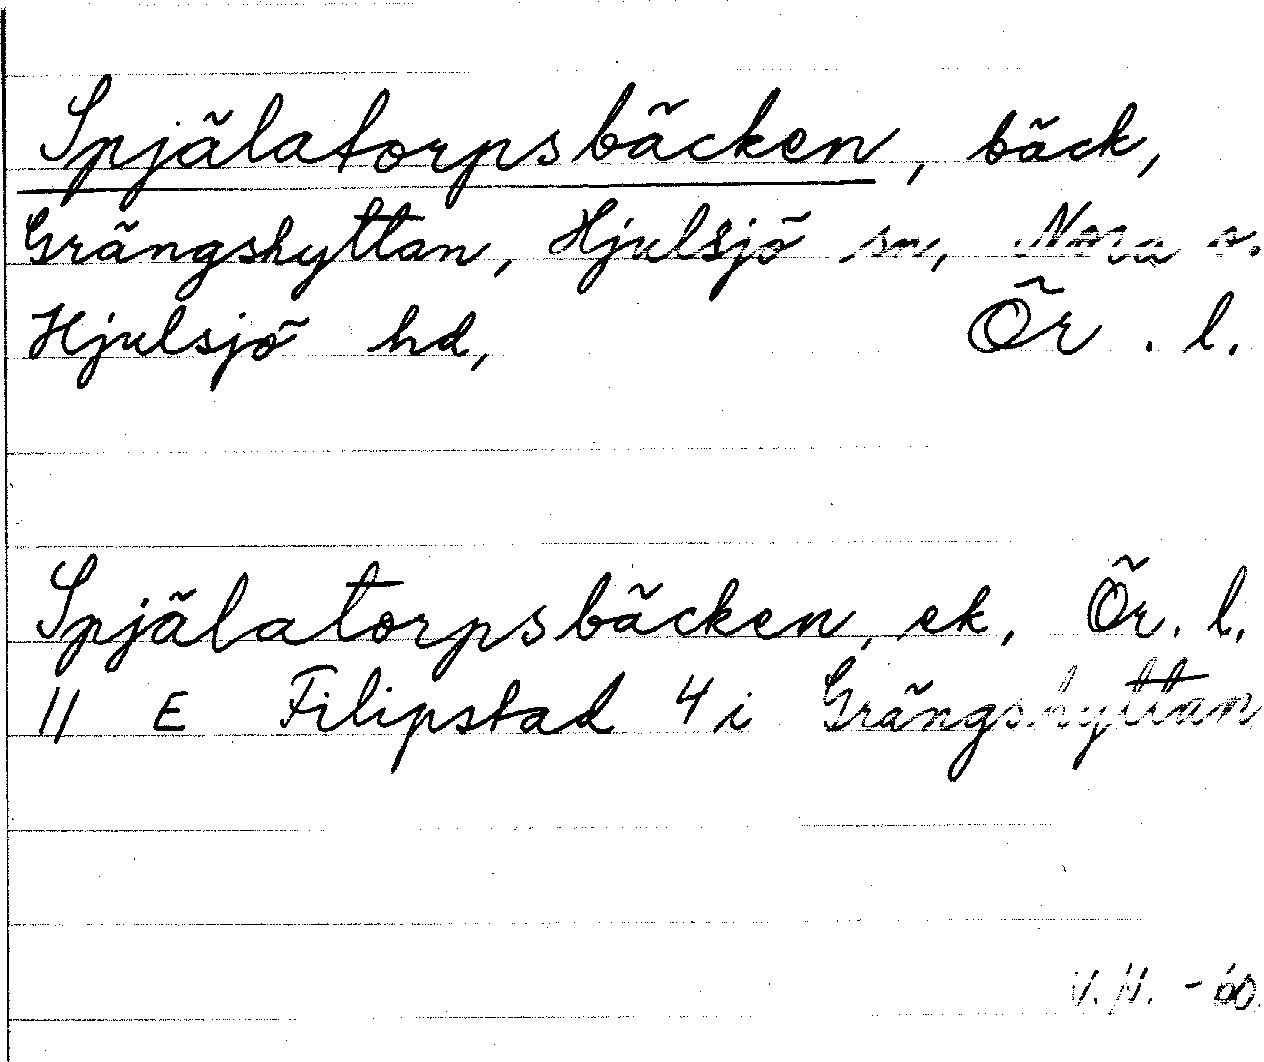 Spjälatorpsbäcken, bäck,
Grängshyttan, Hjulsjö sn, Nora o.
Hjulsjö hd, Ör. l.
Spjälatorpsbäcken, ek, Ör. l.
11 E Filipstad 4 i Grängshyttan
V.H. - 60